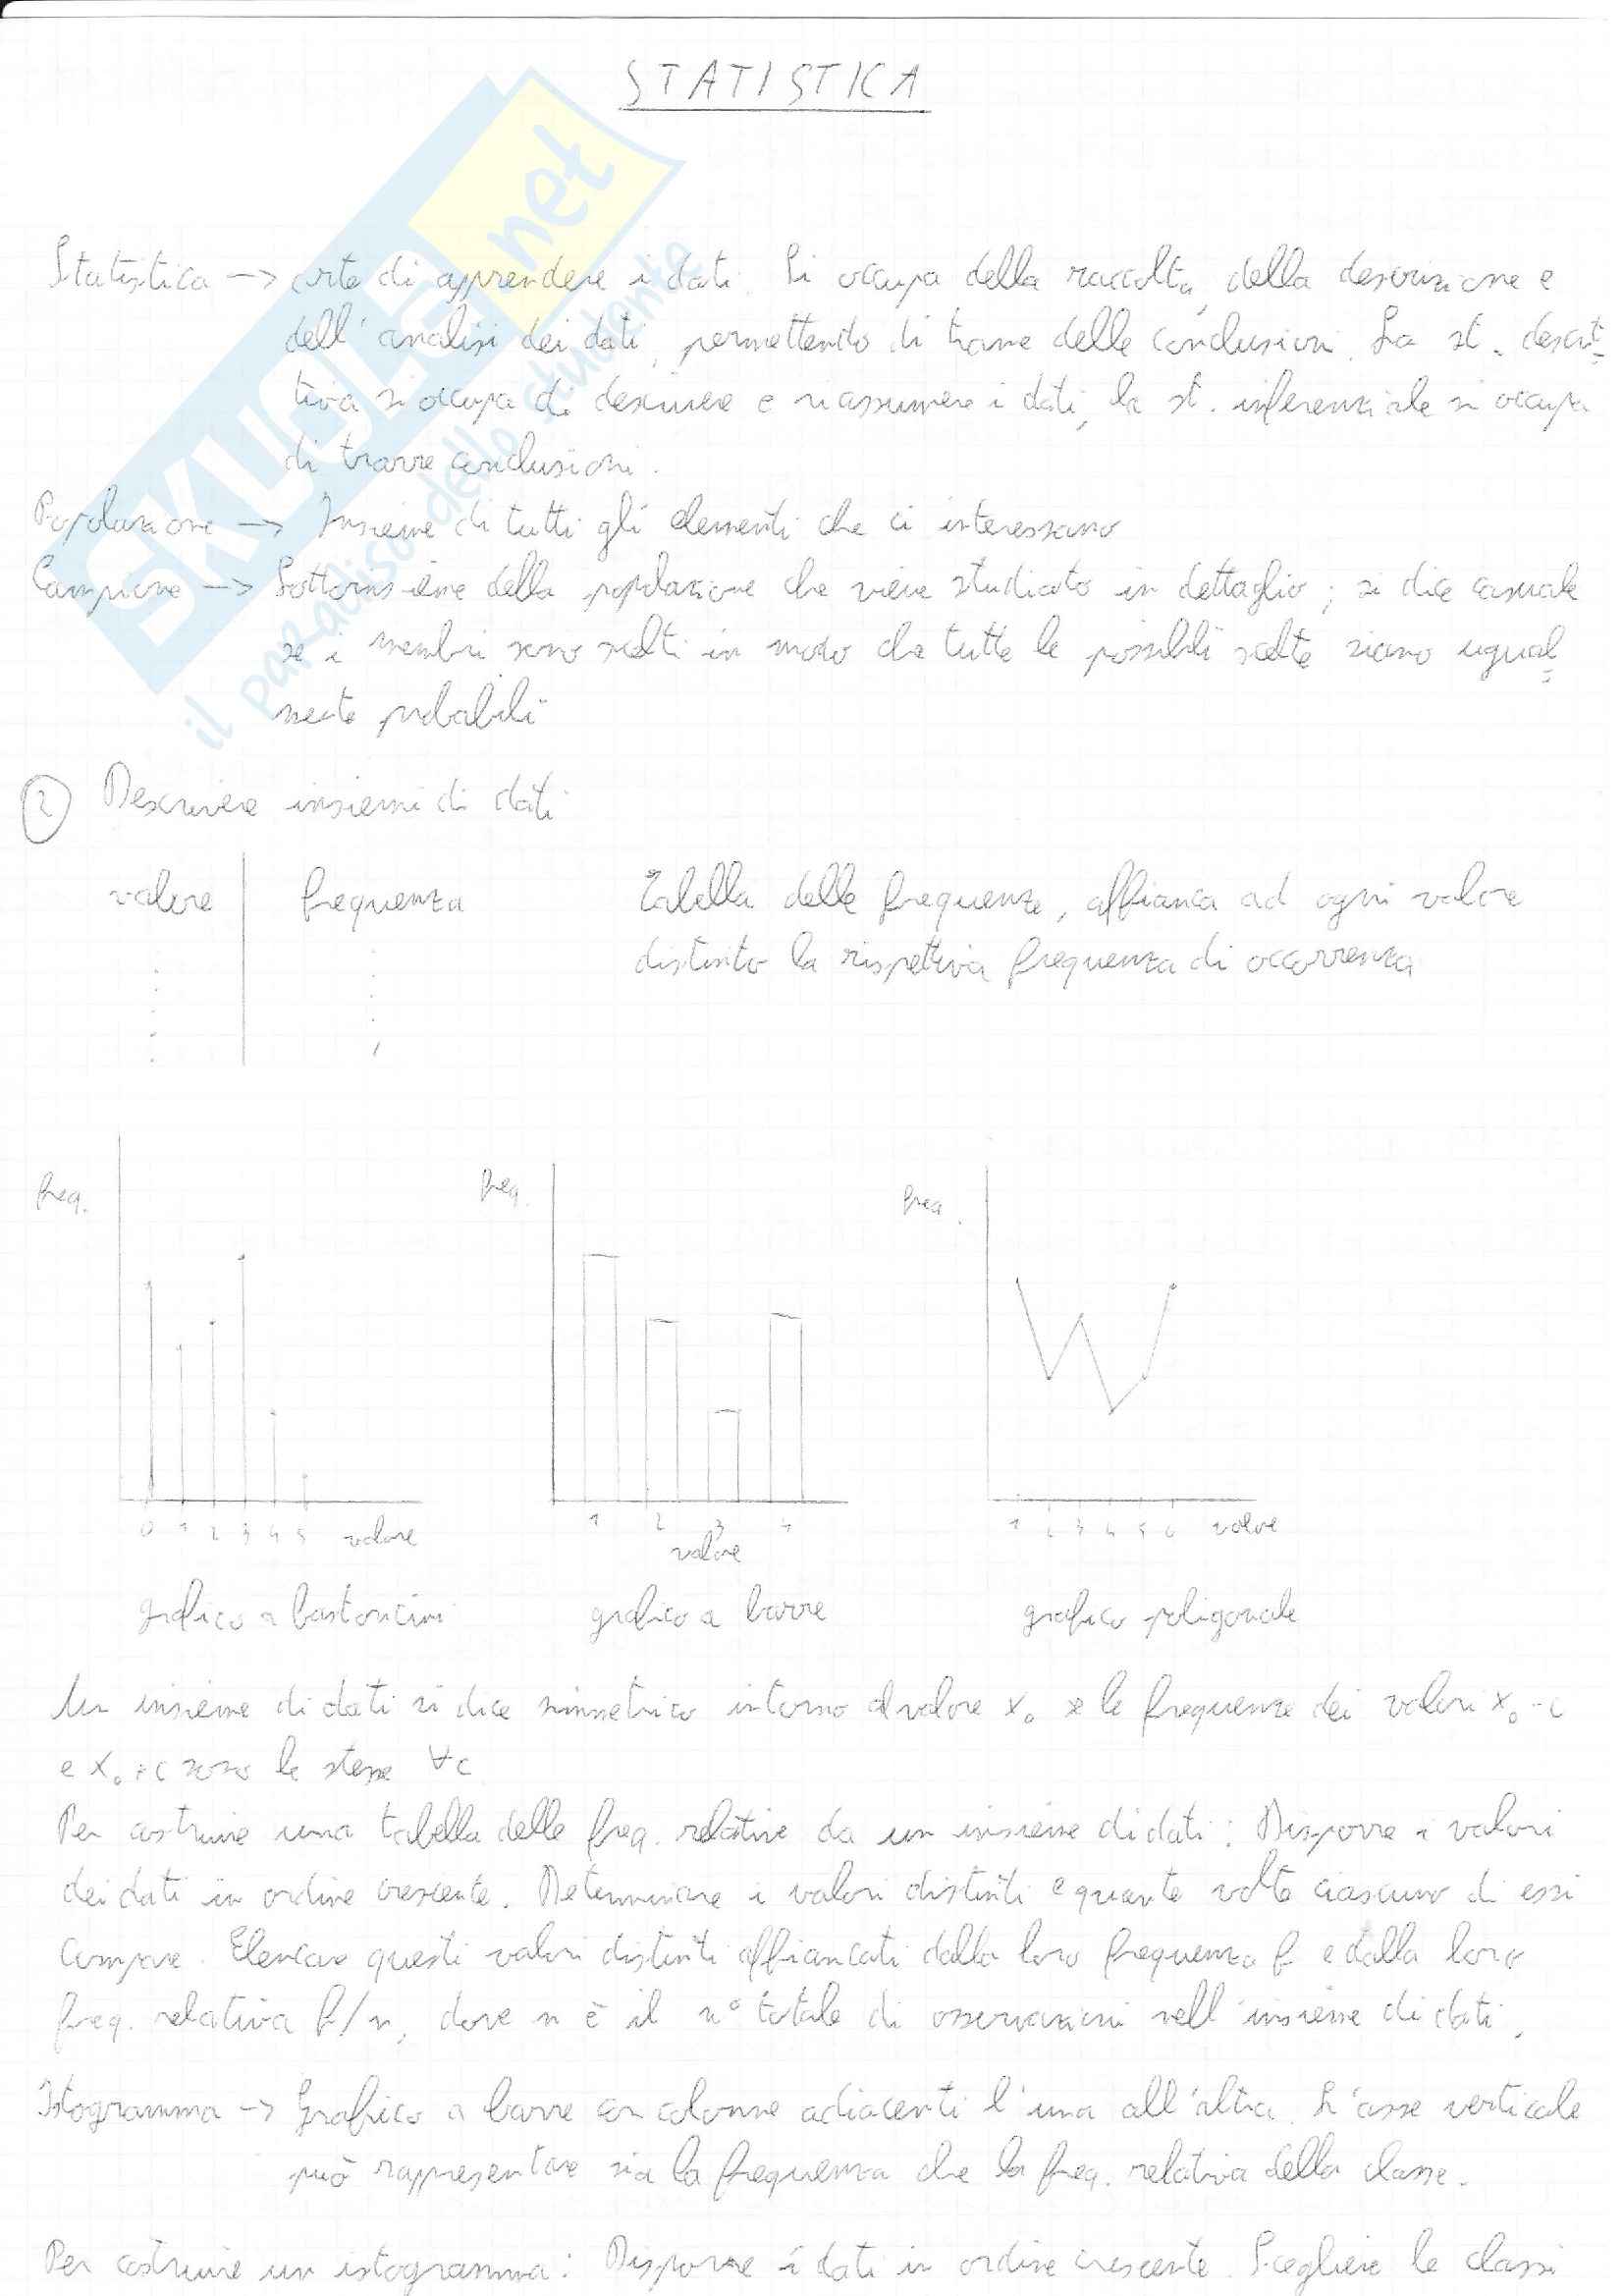 STATISTICA
Statistica -> arte di apprendere i dati. Si occupa della raccolta, della descrizione e
dell'analisi dei dati, permettendo di trarre delle conclusioni. La st. descrit=
tiva si occupa di descrivere e riassumere i dati, la st. inferenziale si occupa
di trarre conclusioni.
Popolazione -> Insieme di tutti gli elementi che ci interessano
Campione -> Sottoinsieme della popolazione che viene studiato in dettaglio; si dice casuale
se i membri sono scelti in modo che tutte le possibili scelte siano ugual=
mente probabili
2 Descrivere insiemi di dati
valore frequenza Tabella delle frequenze, affianca ad ogni valore
distinto la rispettiva frequenza di occorrenza
freq. freq. freq.
0 1 2 3 4 5 valore 1 2 3 4 1 2 3 4 5 6 valore
valore
grafico a bastoncini grafico a barre grafico poligonale
Un insieme di dati si dice simmetrico intorno al valore x₀ se le frequenze dei valori x₀-c
e x₀+c sono le stesse ∀c
Per costruire una tabella delle freq. relative da un insieme di dati: Disporre i valori
dei dati in ordine crescente. Determinare i valori distinti e quante volte ciascuno di essi
compare. Elencare questi valori distinti affiancati dalla loro frequenza f e dalla loro
freq. relativa f/n, dove n è il n° totale di osservazioni nell'insieme di dati.
Istogramma -> Grafico a barre con colonne adiacenti l'una all'altra. L'asse verticale
può rappresentare sia la frequenza che la freq. relativa della classe.
Per costruire un istogramma: Disporre i dati in ordine crescente. Scegliere le classi
SKUOLA.net
il paradiso dello studente